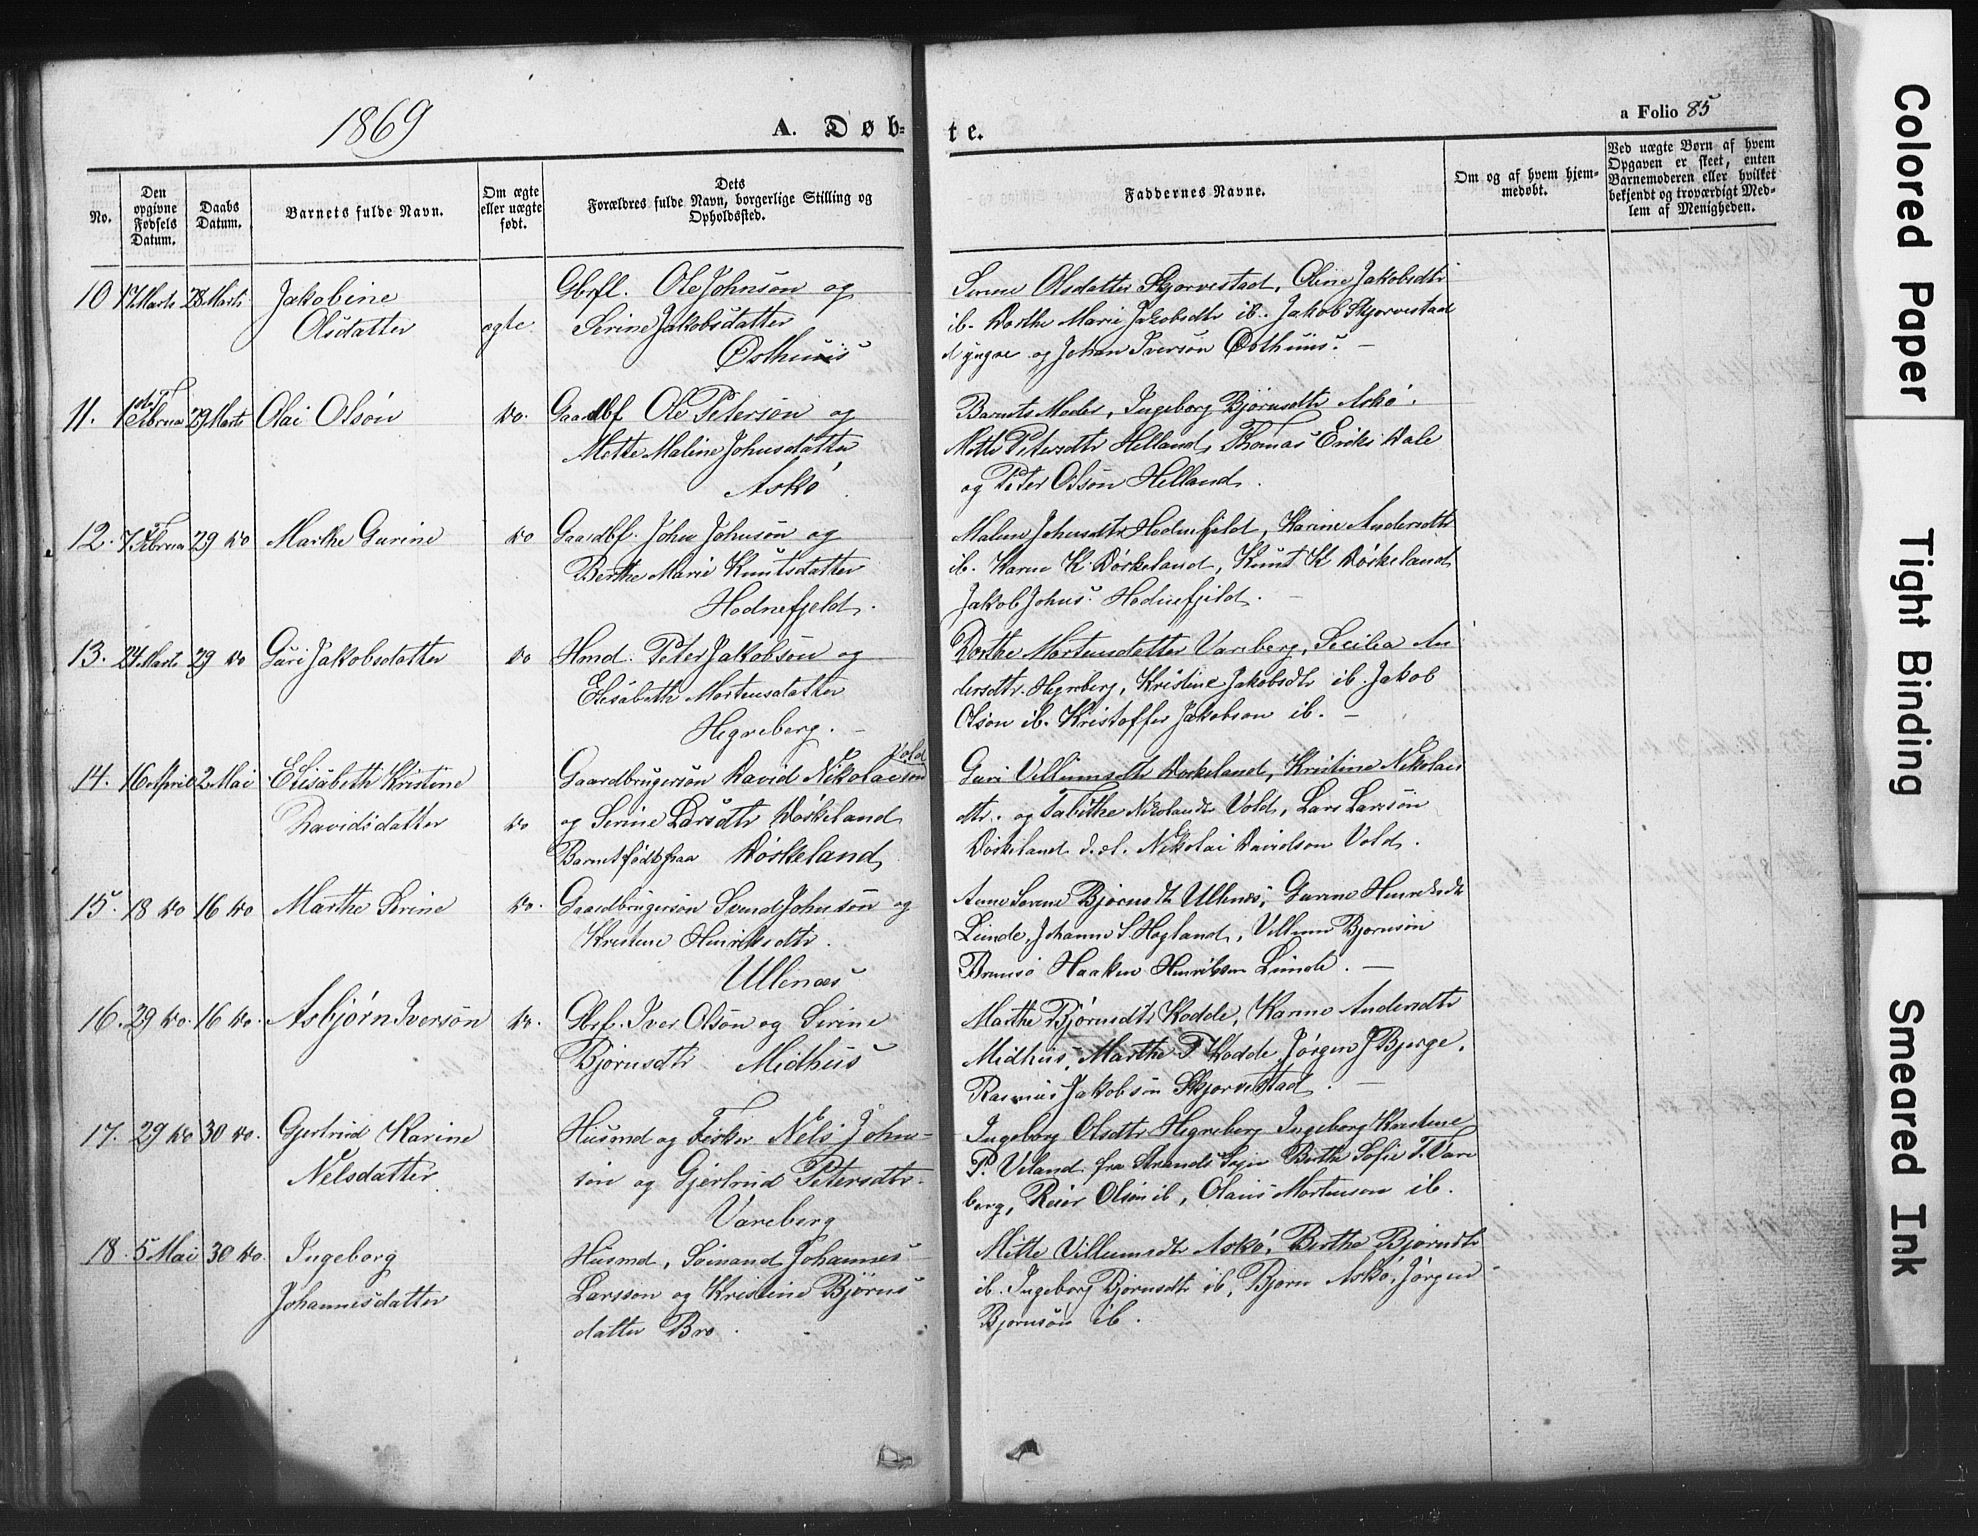 1869
A. Døb-
te.
a Folio 85
No.
Den
opgivne
Fødsels
Datum.
Daabs
Datum.
Barnets fulde Navn.
Om ægte
eller uægte
født.
Dets
Forældres fulde Navn, borgerlige Stilling og
Opholdssted.
Faddernes Navne.
Om og af hvem hjem-
medøbt.
Ved uægte Børn af hvem
Opgaven er skeet, enten
Barnemoderen eller hvilket
bekjendt og troværdigt Med-
lem af Menigheden.
10 17 Marts 28 Marts Jakobine
Olsdatter
ægte
Gbrfl. Ole Johnson og
Serine Jakobsdatter
Østhuus
Serene Olsdatter Skjørvestad, Oline Jakobsdtr
ib. Dorthe Marie Jakobsdtr ib. Jakob Skjørvestad
d yngre og Johan Iverson Østhuus. –
11. 1 Februa 29 Marts Olai Olsøn do. Gaardbf Ole Peterson og
Mette Maline Johnsdatter
Askø.
Barnets Moder, Ingeborg Bjørnsdtr Askø.
Mette Petersdtr Helland, Thomas Eriks Dale
og Peter Olsøn Helland.
12. 7 Februa 29 do Marthe Gurine do Gaardbf. John Johnsøn og
Berthe Marie Knutsdatter
Hodnefjeld.
Malene Johnsdtr Hodnefjeld, Karine Andersdtr
ib. Karen K. Dörkeland, Knut K Dörkeland
Jakob Johns. Hodnefjeld. –
13. 24 Marts 29 do Guri Jakobsdatter do Hmd. Peter Jakobson og
Elisabeth Mortensdatter
Hegreberg. –
Dorthe Mortensdatter Vareberg, Secilia An
dersdtr. Hegreberg, Kristine Jakobsdtr ib. Jakob
Olson ib. Kristoffer Jakobson ib. –
14. 16 April 2 Mai Elisabeth Kristine
Davidsdatter
do
Gaardbrugersøn David Nikolaison Vold
og Serine Larsdtr Dörkeland
Barnet født fraa Dörkeland
Guri Villumsdtr Dörkeland, Kristine Nikolai
dtr. og Tabithe Nikolaidtr Vold, Lars Larssön
Dörkeland d. æl. Nikolai Davidson Vold.
15. 18 do 16 do Marthe Serine do. Gaardbrugersøn Svend Johnson og
Kristine Henriksdtr.
Ullenæs
Anne Serene Bjørnsdtr Ullenæs, Gurine Henriksdtr
Lunde, Johanne S. Hagland, Villum Bjornsön
Bremsö Haaken Henrikson Lunde. –
16. 29 do. 16 do. Asbjørn Iversøn do. Gbrf. Iver Olsøn og Serine
Bjørnsdtr Midhus
Marthe Bjørnsdtr Kodde, Karine Andersdtr
Midhus, Marthe P Kodde, Jørgen J Bjerge,
Rasmus Jakobson Skjørvestad. –
17. 29 do 30 do. Gjertrud Karine
Nelsdatter
Husmd og Fisker Nels John-
søn og Gjertrud Petersdtr.
Vareberg
Ingeborg Olsdtr Hegreberg Ingeborg Kristine
P. Veland fra Strands Sogn Berthe Sofie T. Vare
berg, Reier Olsön ib, Olaus Mortenson ib.
18. 5 Mai 30 do. Ingeborg
Johannesdatter
Husmd, Sömand Johannes
Larsson og Kristine Bjørns
datter Bro.
Mette Villumsdtr Askø, Berthe Bjørnsdtr
ib. Ingeborg Bjørnsdtr ib, Bjørn Askø, Jørgen
Bjørnsön ib.
Colored Paper
Tight Binding
Smeared Ink